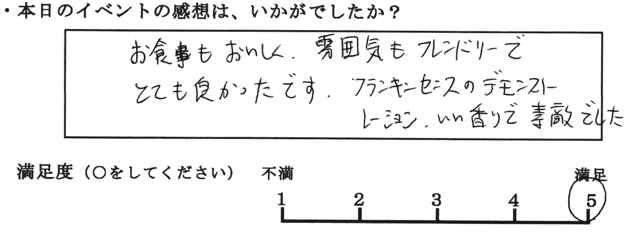 ・本日のイベントの感想は、いかがでしたか？
お食事もおいしく、雰囲気もフレンドリーで
とても良かったです。フランキンセンスのデモンスト
レーション、いい香りで素敵でした
満足度（○をしてください） 不満 満足
1 2 3 4 5